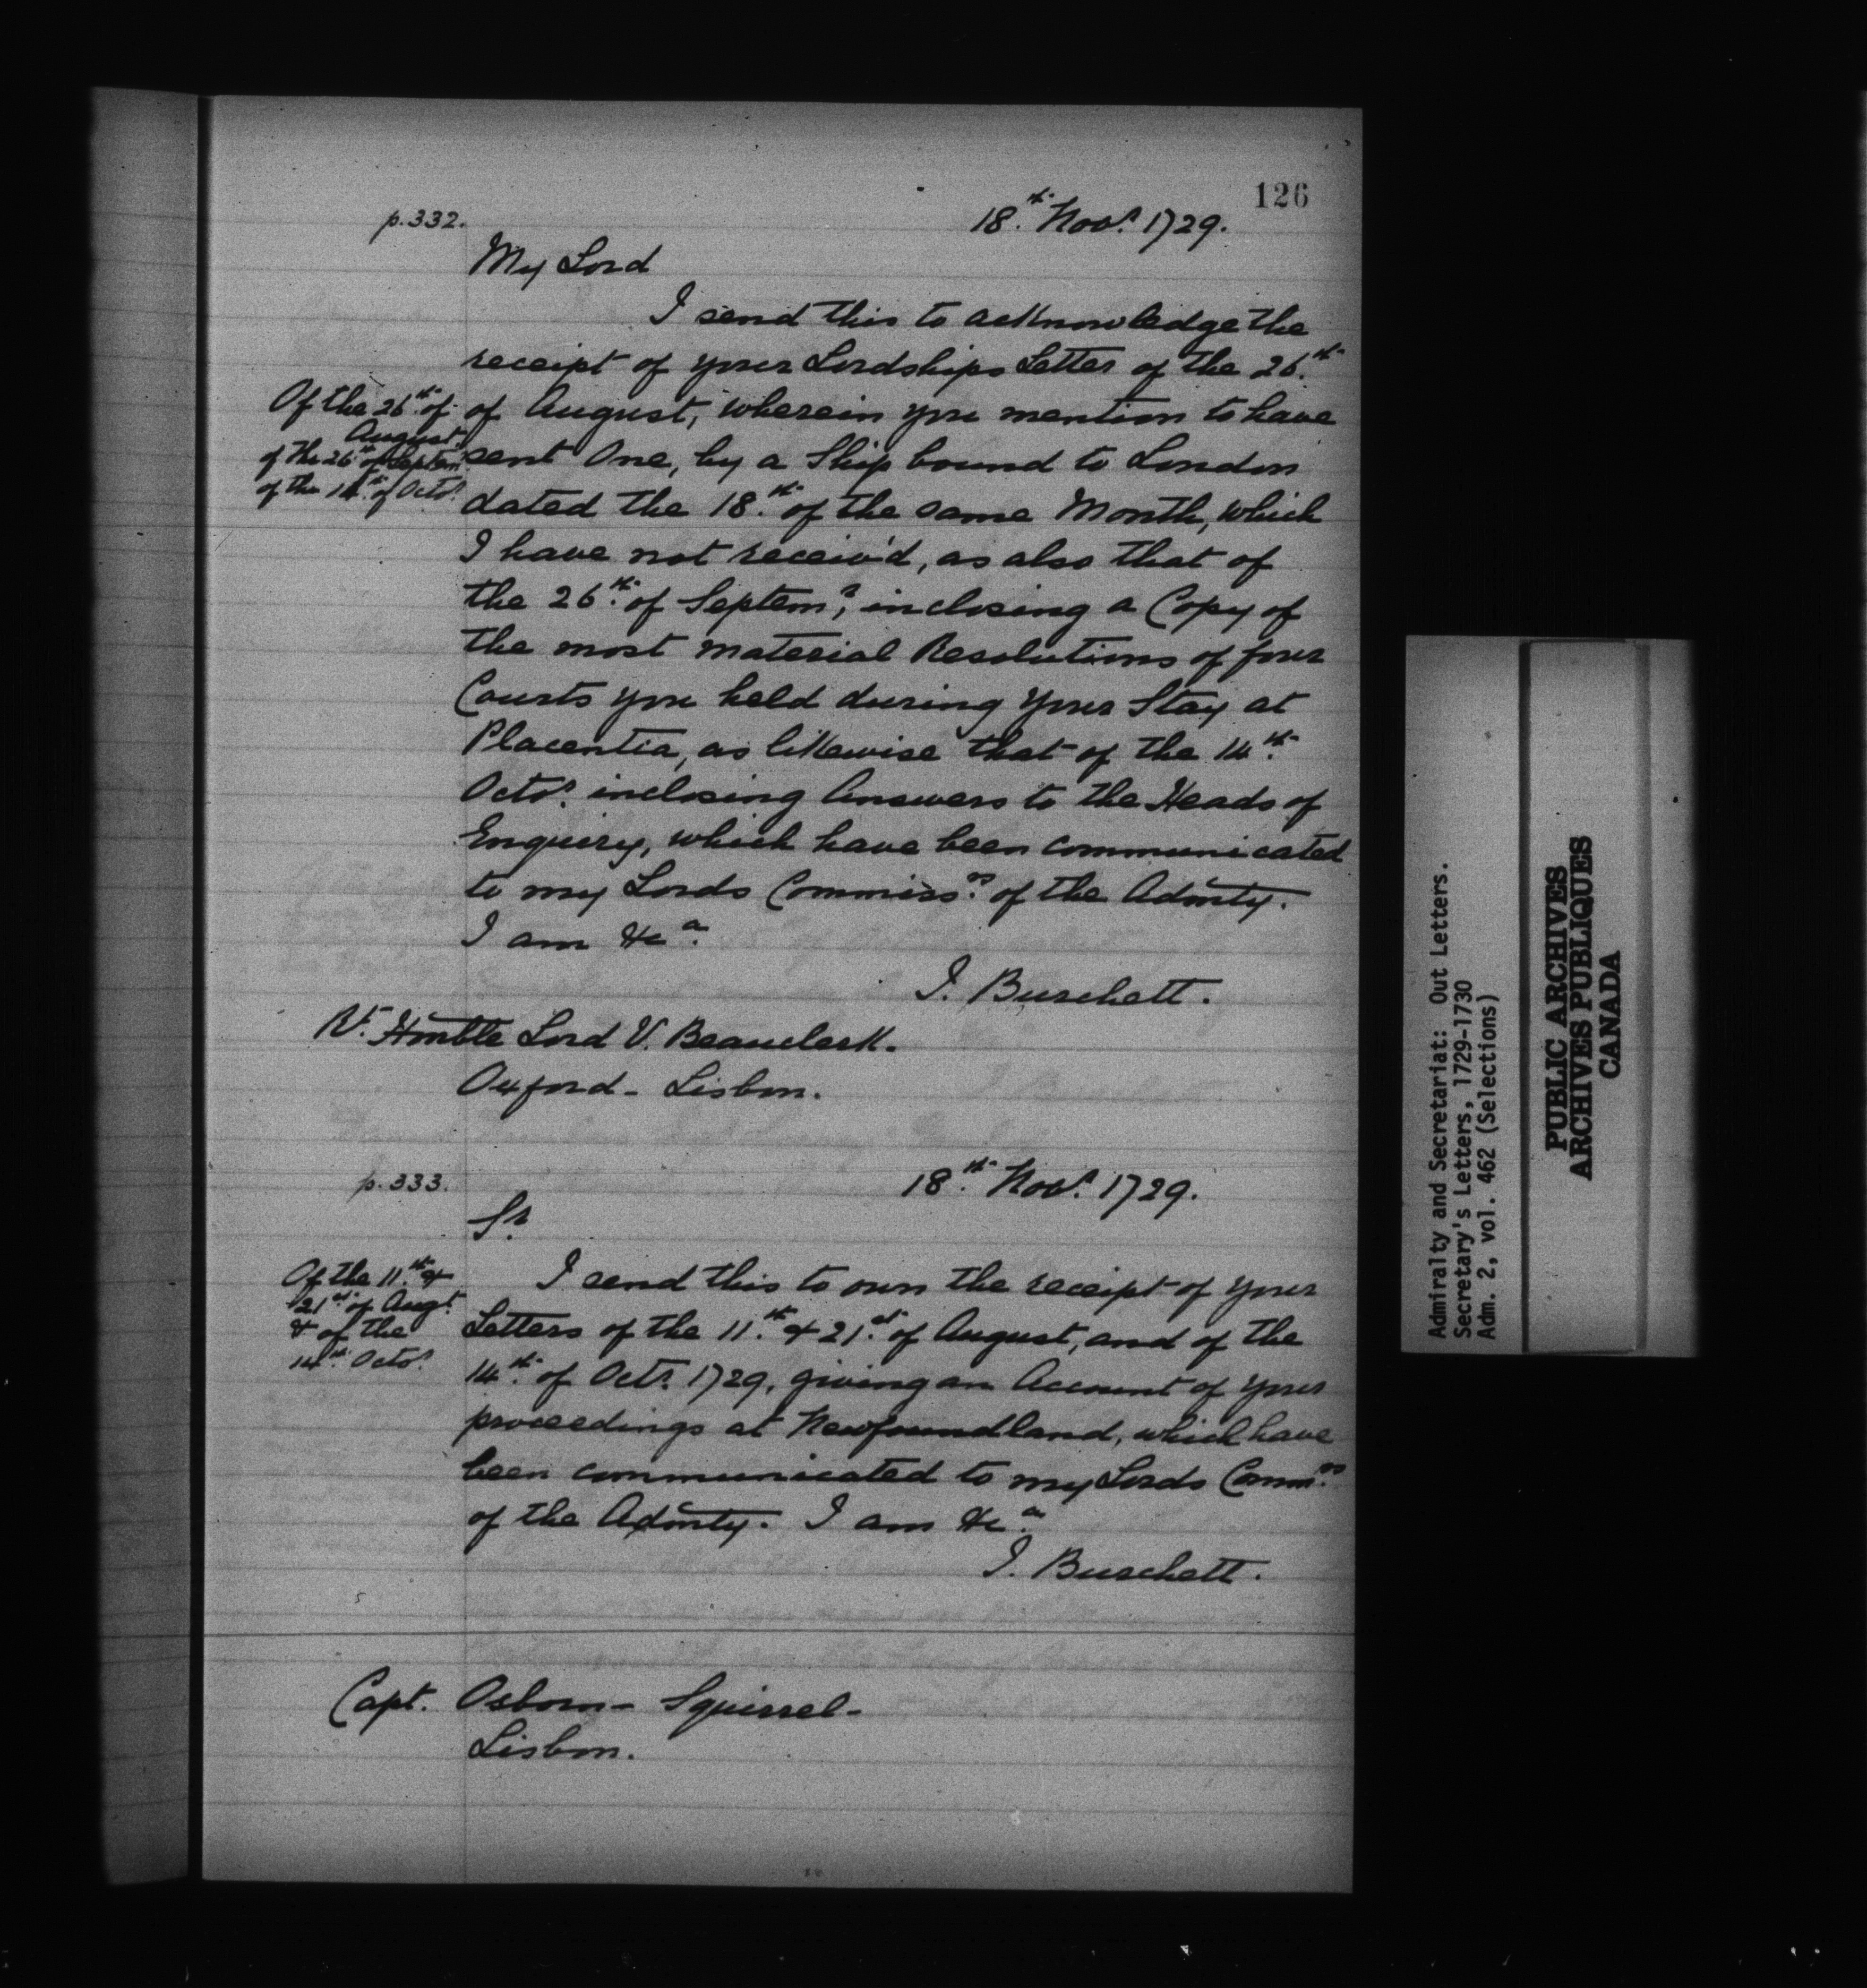 126
p.332.
18th. Novr. 1729.
My Lord
I send this to acknowledge the
receipt of your Lordships Letter of the 26th.
Of the 26th. of
August.
of the 26th of Septemr.
of the 14th. of Octor.
of August, wherein you mention to have
sent One, by a Ship bound to London
dated the 18th. of the same Month, which
I have not receiv'd, as also that of
the 26th. of Septemr, inclosing a Copy of
the most material Resolutions of four
Courts you held during your Stay at
Placentia, as likewise that of the 14th.
Octor. inclosing Answers to the Heads of
Enquiry, which have been communicated
to my Lords Commissrs. of the Admty.
I am &ca.
J. Burchett.
Rt. Honble Lord V. Beauclerk.
Oxford - Lisbon.
p.333.
18th. Novr. 1729.
Sr.
Of the 11th. &
21st. of Augt.
& of the
14th. Octor.
I send this to own the receipt of your
Letters of the 11th. & 21st. of August, and of the
14th. of Octr. 1729, giving an Account of your
proceedings at Newfoundland, which have
been communicated to my Lords Commrs.
of the Admty. I am &ca.
J. Burchett.
Capt. Osborn - Squirrel -
Lisbon.
Admiralty and Secretariat: Out Letters.
Secretary's Letters, 1729-1730
Adm. 2, vol. 462 (Selections)
PUBLIC ARCHIVES
ARCHIVES PUBLIQUES
CANADA